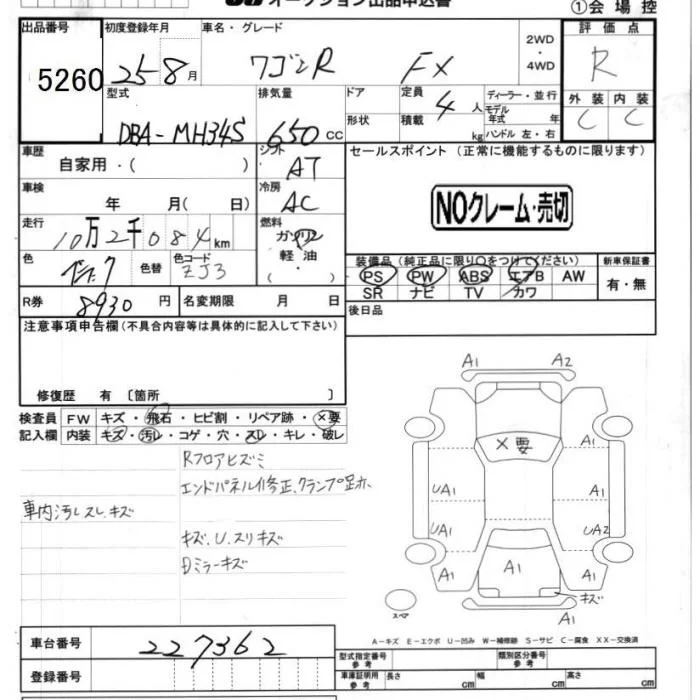 オークション出品申込書
①会場控
出品番号 初度登録年月 車名・グレード 2WD ・ 4WD 評価点
5260 25-8月 ワゴンR FX R
型式 排気量 ドア 定員 ディーラー・並行 外装 内装
DBA-MH34S 650cc 形状 4人 積載 kg モデル年式 年 ハンドル 左・右 C C
車歴 シフト セールスポイント (正常に機能するものに限ります)
自家用・( ) AT
車検 冷房 NOクレーム・売切
年 月( 日) AC
走行 燃料
10万2千084km ガソリン
色 色替 色コード 軽油・ 装備品(純正品に限り○をつけてください) 新車保証書
ZJ3 ( ) PS PW ABS エアB AW 有・無
R券 8930円 名変期限 月 日 SR ナビ TV カワ
注意事項申告欄(不具合内容等は具体的に記入して下さい) 後日品
修復歴 有 〔箇所 〕
検査員 FW キズ・飛石・ヒビ割・リペア跡・×要
記入欄 内装 キズ・汚レ・コゲ・穴・スレ・キレ・破レ
Rフロアヒズミ
エンドパネル修正、クランプ足ホ
車内汚レスレキズ
キズ、U、スリキズ
Dミラーキズ
A1 A2
×要 A1
UA1 A1
UA1 UA2
A1 A1 A1
キズ
スペア A1
A-キズ E-エクボ U-凹み W-補修跡 S-サビ C-腐食 XX-交換済
車台番号 227362
型式指定番号 参考 類別区分番号 参考
登録番号 車庫証明用 参考 長さ cm 幅 cm 高さ cm